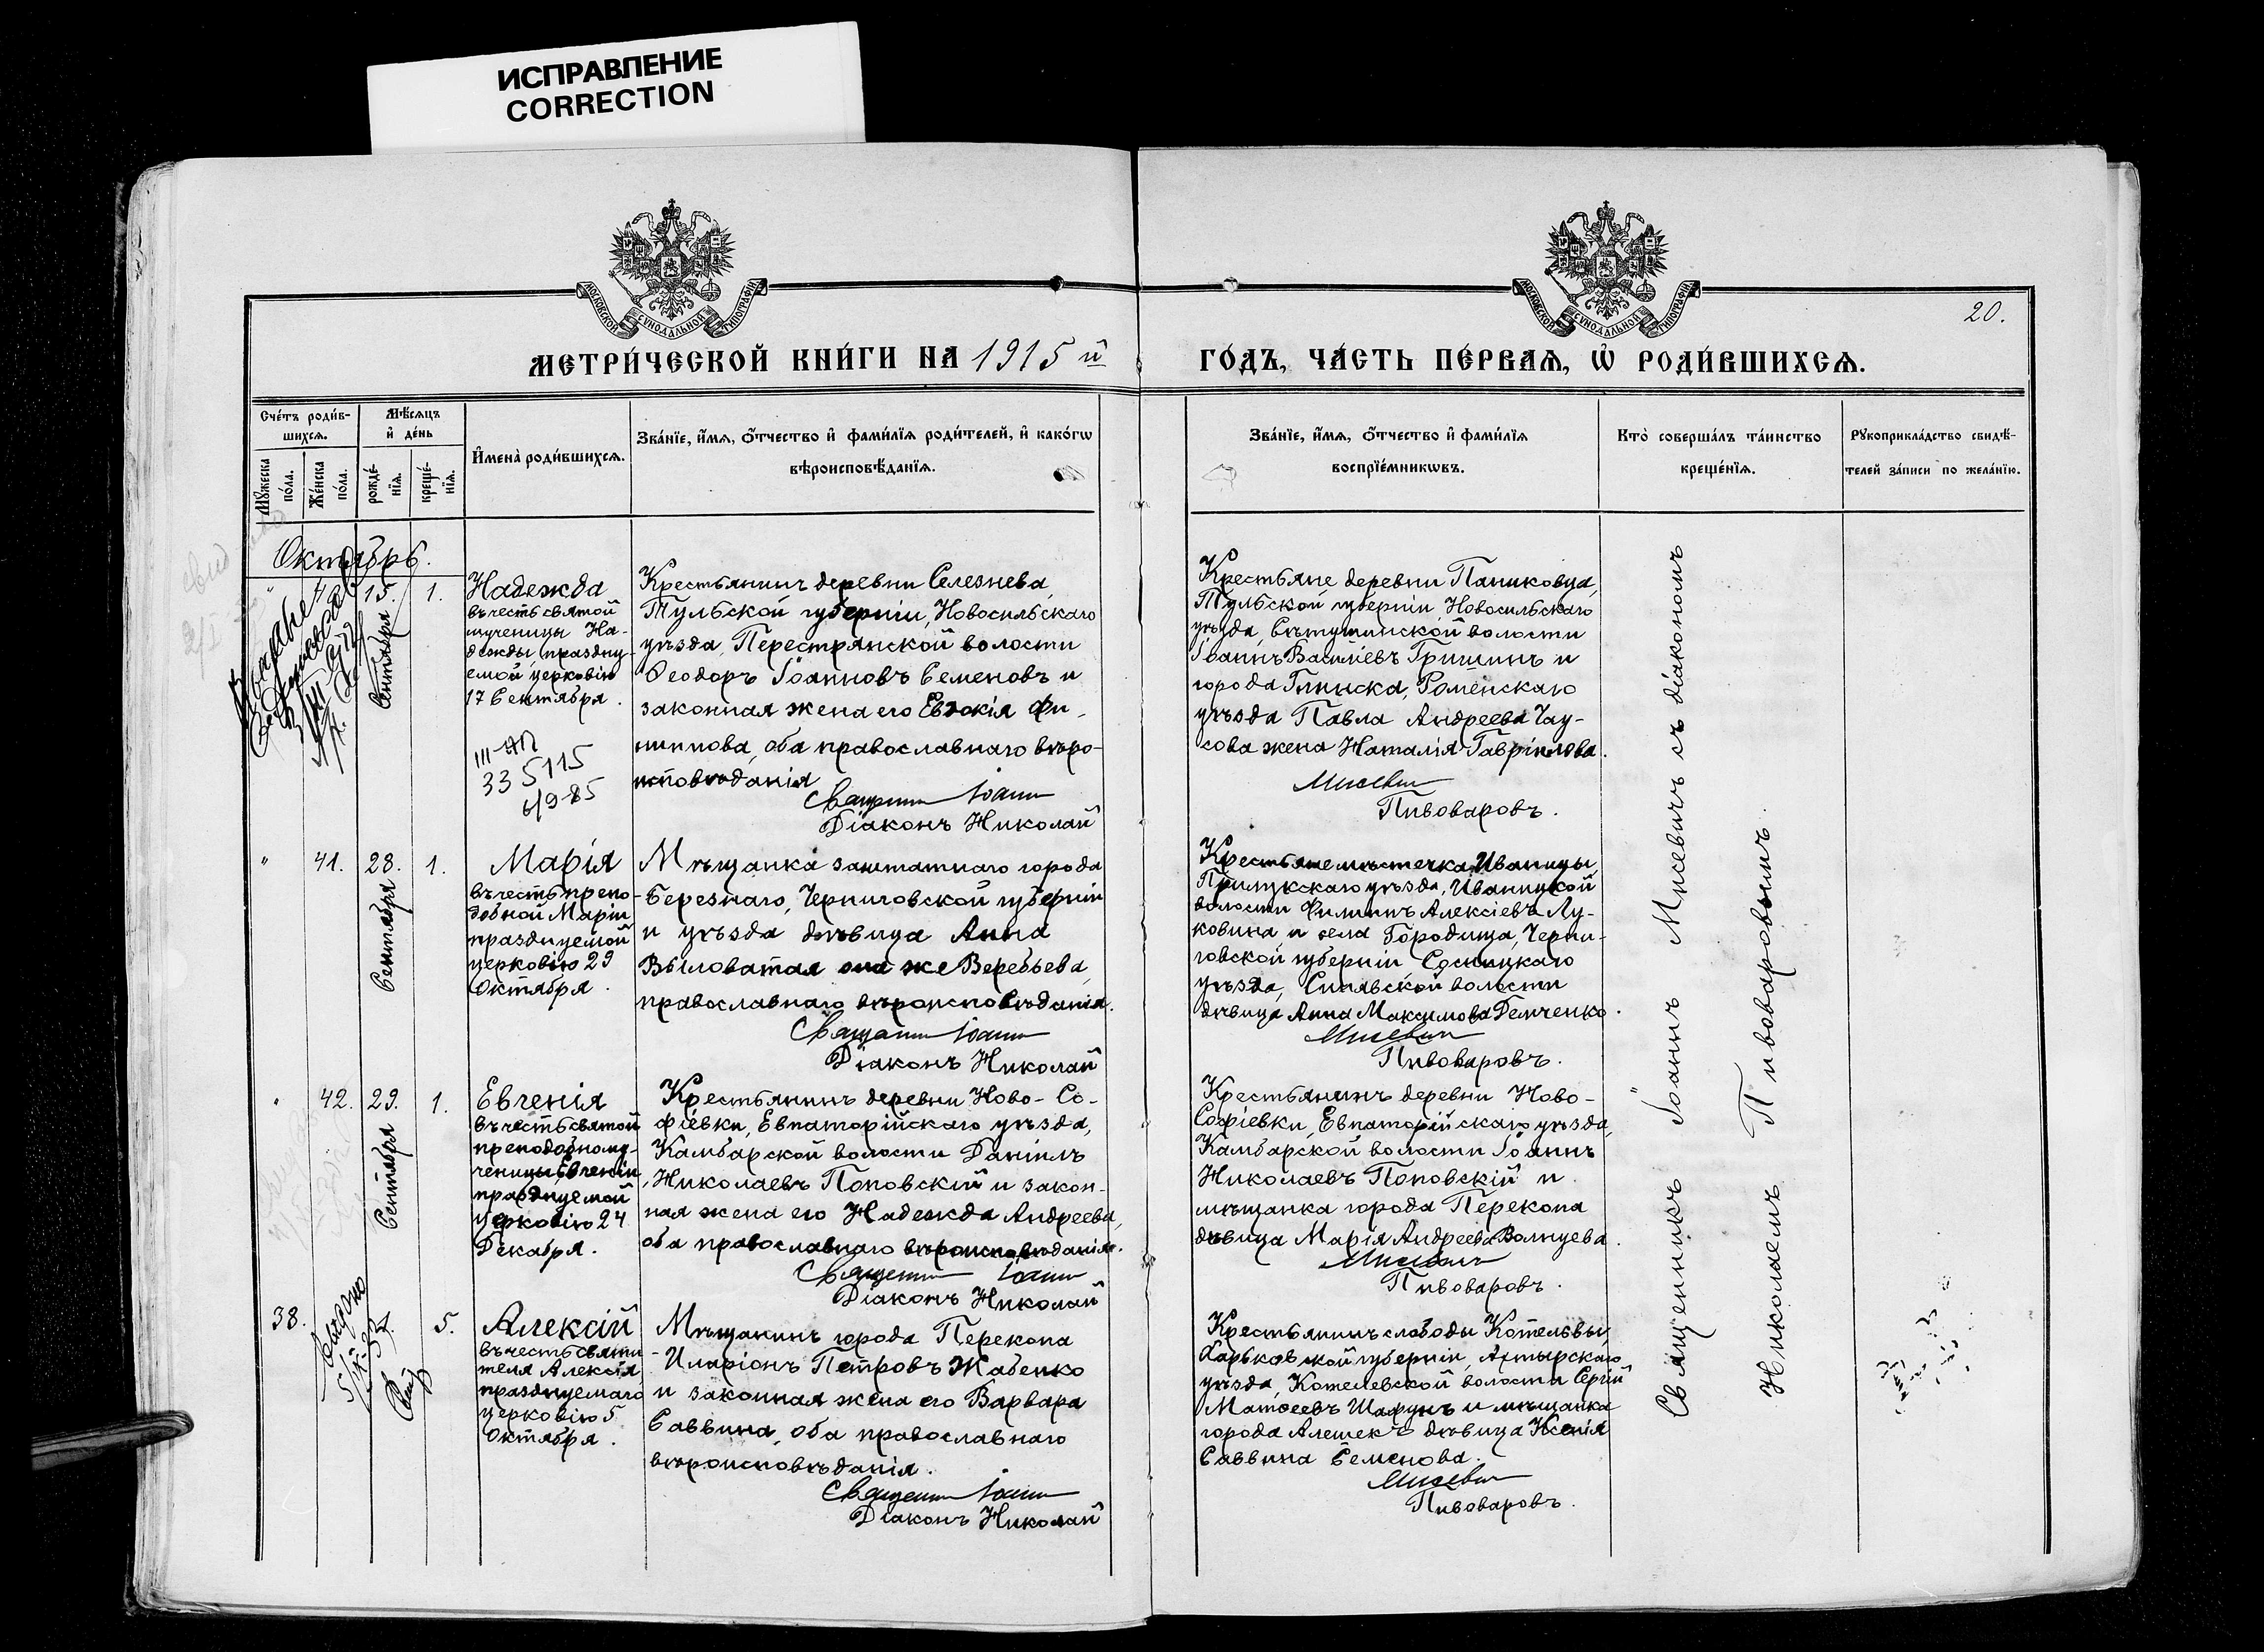 ИСПРАВЛЕНИЕ
CORRECTION
МОСКОВСКОЙ СѴНОДАЛЬНОЙ ТИПОГРАФІИ
МОСКОВСКОЙ СѴНОДАЛЬНОЙ ТИПОГРАФІИ
20.
МЕТРИ́ЧЕСКОЙ КНИ́ГИ НА 1915 й
ГО́ДЪ, ЧА́СТЬ ПЕ́РВАѦ, Ѡ҆ РОДИ́ВШИХСѦ.
Сче́тъ роди́в-
шихсѧ.
Мѣ́сѧцъ
и҆ де́нь
Мꙋ́жеска
по́ла.
Же́нска
по́ла.
рожде́-
нїѧ.
креще́-
нїѧ.
И҆мена̀ роди́вшихсѧ.
Зва́нїе, и҆́мѧ, ѻ҆́тчество и҆ фами́лїѧ роди́телей, и҆ како́гѡ
вѣроисповѣ́данїѧ.
Зва́нїе, и҆́мѧ, ѻ҆́тчество и҆ фами́лїѧ
воспрїе́мникѡвъ.
Кто̀ соверша́лъ та́инство
креще́нїѧ.
Рꙋкоприкла́дство свидѣ́-
телей за́писи по жела́нїю.
Октябрь.
15. 1.
Сентября
Надежда
въ честь святой
мученицы На-
дежды, праздну-
емой церковію
17 Сентября.
335115
6/9-85
Крестьянинъ деревни Селезнева,
Тульской губерніи, Новосильскаго
уѣзда, Перестряжской волости
Ѳеодоръ Іоанновъ Семеновъ и
законная жена его Евдокія Фи-
липпова, оба православнаго вѣро-
исповѣданія
Священникъ Іоаннъ
Діаконъ Николай
Крестьяне деревни Паниковца,
Тульской губерніи Новосильскаго
уѣзда, волости
Іоаннъ Василіевъ Гришинъ и
города Глинска, Роменскаго
уѣзда Павла Андреева Чау-
сова жена Наталія Гавріилова.
Мисевичъ
Пивоваровъ.
" 41. 28. 1.
Сентября
Марія
въ честь препо-
добной Маріи
празднуемой
церковію 29
Октября.
Мѣщанка заштатнаго города
Березнаго, Черниговской губерніи
и уѣзда дѣвица Анна
Выловатая она же Веребьева,
православнаго вѣроисповѣданія.
Священникъ Іоаннъ
Діаконъ Николай
Крестьяне мѣстечка Иваницы,
Прилукскаго уѣзда, Иваницкой
волости Филиппъ Алексіевъ Лу-
ковина и села Городища, Черни-
говской губерніи Сосницкаго
уѣзда, Синявской волости
дѣвица Анна Максимова Гемченко.
Мисевичъ
Пивоваровъ.
" 42. 29. 1.
Сентября
Евгенія
въ честь святой
преподобному-
ченицы Евгеніи,
празднуемой
церковію 24
Декабря.
Крестьянинъ деревни Ново-Со-
фіевки, Евпаторійскаго уѣзда,
Камбарской волости Даніилъ
Николаевъ Поповскій и закон-
ная жена его Надежда Андреева,
оба православнаго вѣроисповѣданія.
Священникъ Іоаннъ
Діаконъ Николай
Крестьянинъ деревни Ново-
Софіевки, Евпаторійскаго уѣзда,
Камбарской волости Іоаннъ
Николаевъ Поповскій и
мѣщанка города Перекопа
дѣвица Марія Андреева Волнцева.
Мисевичъ
Пивоваровъ.
38. 5.
Алексій
въ честь святи-
теля Алексія,
празднуемаго
церковію 5
Октября.
Мѣщанинъ города Перекопа
Иларіонъ Петровъ Жабенко
и законная жена его Варвара
Саввина, оба православнаго
вѣроисповѣданія.
Священникъ Іоаннъ
Діаконъ Николай
Крестьянинъ слободы Котельвы,
Харьковской губерніи, Ахтырскаго
уѣзда, Котелевской волости Сергій
Матѳеевъ Шафунъ и мѣщанка
города Алешекъ дѣвица Ксенія
Саввина Семенова.
Мисевичъ
Пивоваровъ.
Священникъ Іоаннъ Мисевичъ съ діакономъ
Николаемъ Пивоваровымъ.